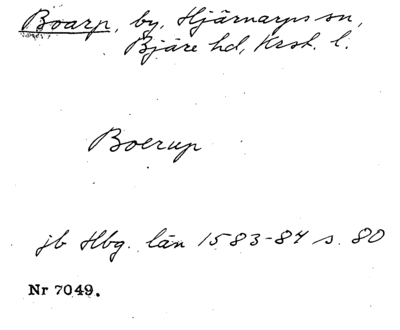 Boarp, by, Hjärnarps sn,
Bjäre hd, Krst. l.
Boerup
jb Hbg. län 1583-84 s. 80
Nr 7049.